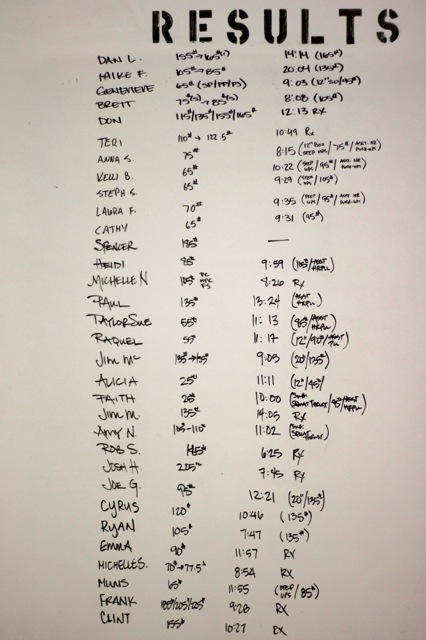 RESULTS
DAN L. 155#→165#(1) 14:14 (165#)
MIKE F. 105#→85# 20:04 (135#)
GENEVIEVE 65# (SP/PP/PJ) 9:03
BRETT 75#(5)→85#(5) 8:08 (105#)
DON 115/135#/155#/165# 12:13 RX
TERI 110#→112.5# 10:49 Rx
ANNA S. 75# 8:15 (12" BOX STEP UPS/75#/
KELLI B. 65# 10:22 (STEP UPS/95#/
STEPH S. 65# 9:29 (STEP UPS/105#)
LAURA F. 70# 9:35 (STEP UPS/85#/
CATHY 65# 9:31 (95#)
SPENCER 185# —
HEIDI 85# 9:59 (105#/ASST HRPU)
MICHELLE N 105# 8:26 Rx
PAUL 135# 13:24 (ASST HRPU)
TAYLOR SUE 55# 11:13 (85#/ASST HRPU)
RAQUEL 55# 11:17
JIM MC 135#→155# 9:05 (20"/135#)
ALICIA 25# 11:11 (12"/45#)
FAITH 25# 10:00
JIM M. 135# 14:05 Rx
AMY N. 105-110# 11:02
ROB S. 6:25 Rx
JOSH H. 205# 7:45 Rx
JOE G. 95# 12:21 (20"/135#)
CYRUS 120# 10:46 (135#)
RYAN 105# 7:47 (135#)
EMMA 90# 11:57 RX
MICHELLE S. 70#→77.5# 8:54 RX
MUNS 65# 11:55 (STEP UPS/85#)
FRANK 9:28 RX
CLINT 155# 10:27 RX